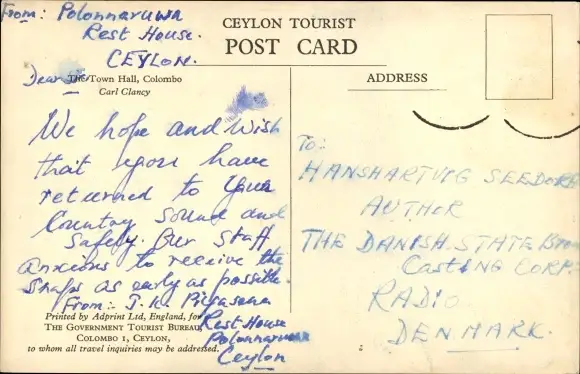 From: Polonnaruwa
Rest House.
CEYLON.
CEYLON TOURIST
POST CARD
Dear Sir
The Town Hall, Colombo
Carl Clancy
We hope and wish
that you have
returned to your
Country sound and
safely. Our staff
anxious to receive the
snaps as early as possible
From:- J. K. Piyasena
Rest House
Polonnaruwa
Ceylon
Printed by Adprint Ltd, England, for
THE GOVERNMENT TOURIST BUREAU,
COLOMBO 1, CEYLON,
to whom all travel inquiries may be addressed.
ADDRESS
To:
HANSHARTVIG SEEDORF
AUTHOR
THE DANISH STATE Broa
Casting CORP:
RADIO
DENMARK.